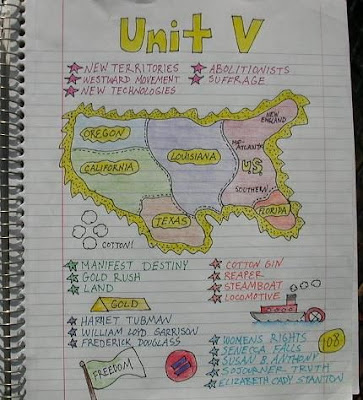 Unit V
NEW TERRITORIES
WESTWARD MOVEMENT
NEW TECHNOLOGIES
ABOLITIONISTS
SUFFRAGE
OREGON
CALIFORNIA
LOUISIANA
TEXAS
NEW
ENGLAND
MID-
ATLANTIC
U.S.
SOUTHERN
FLORIDA
COTTON!
MANIFEST DESTINY
GOLD RUSH
LAND
GOLD
HARRIET TUBMAN
WILLIAM LOYD GARRISON
FREDERICK DOUGLASS
FREEDOM
COTTON GIN
REAPER
STEAMBOAT
LOCOMOTIVE
WOMENS RIGHTS
SENECA FALLS
SUSAN B ANTHONY
SOJOURNER TRUTH
ELIZABETH CADY STANTON
108